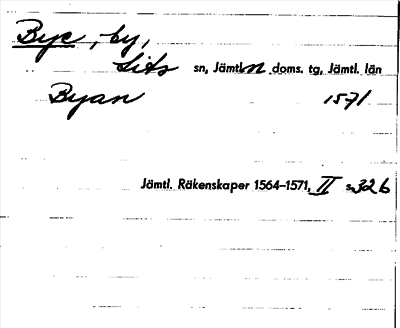 Bye, by,
Lits sn, Jämtl. n doms. tg, Jämtl. län
Byan 1571
Jämtl. Räkenskaper 1564–1571, II s. 326